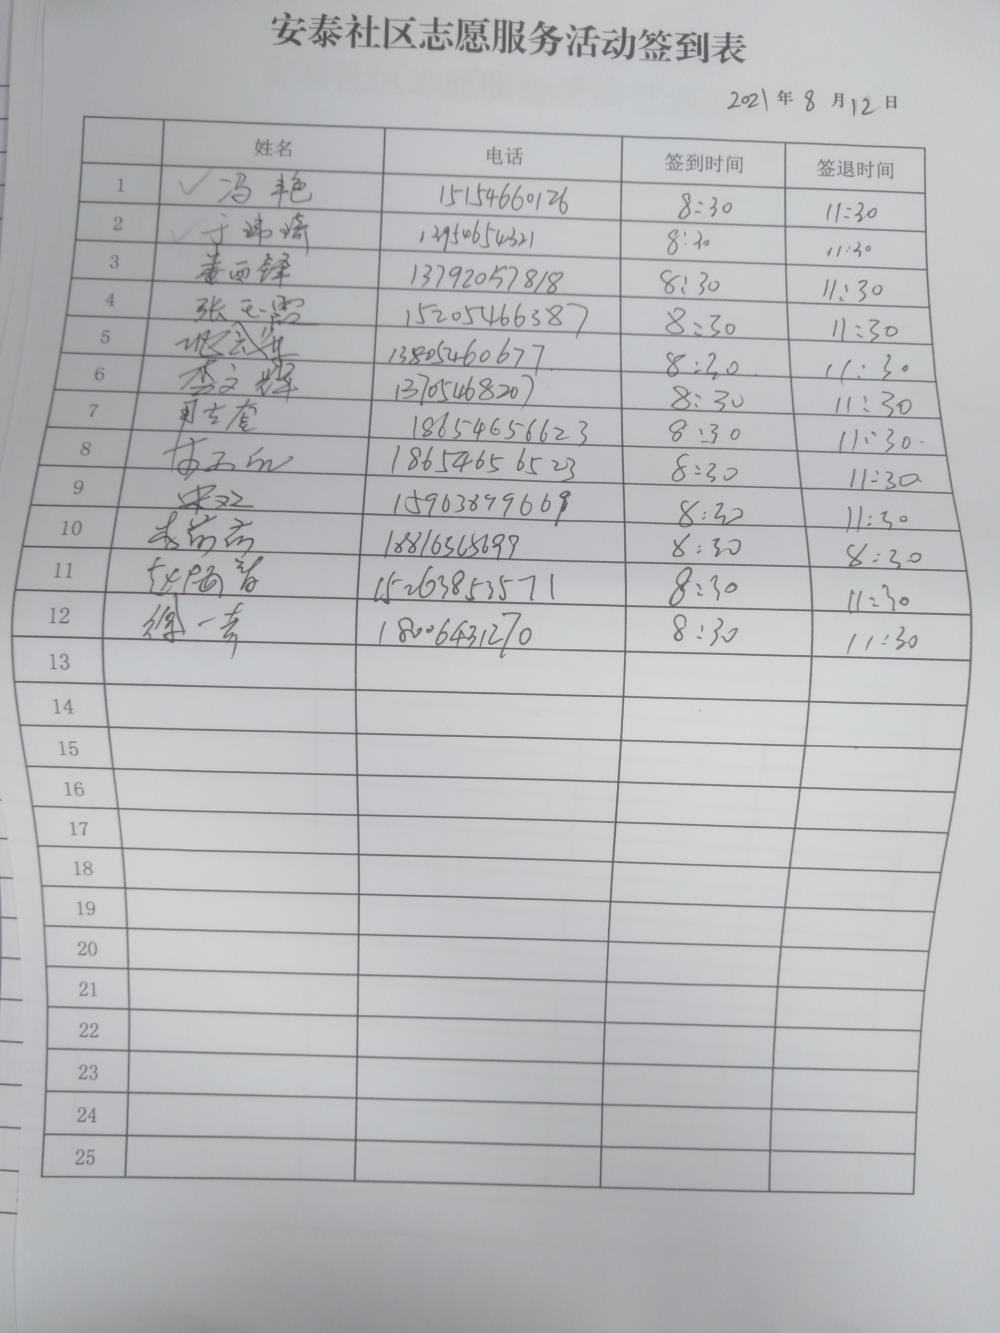 安泰社区志愿服务活动签到表
2021年8月12日
姓名 电话 签到时间 签退时间
1 冯艳 15154660126 8:30 11:30
2 于玮琦 13954654321 8:30 11:30
3 13792057818 8:30 11:30
4 张玉霞 15205466387 8:30 11:30
5 13805460677 8:30 11:30
6 李文辉 13705468207 8:30 11:30
7 18654656623 8:30 11:30
8 18654656523 8:30 11:30
9 宋双 15963899669 8:30 11:30
10 8:30 8:30
11 15263853571 8:30 11:30
12 徐一奇 18006431270 8:30 11:30
13
14
15
16
17
18
19
20
21
22
23
24
25